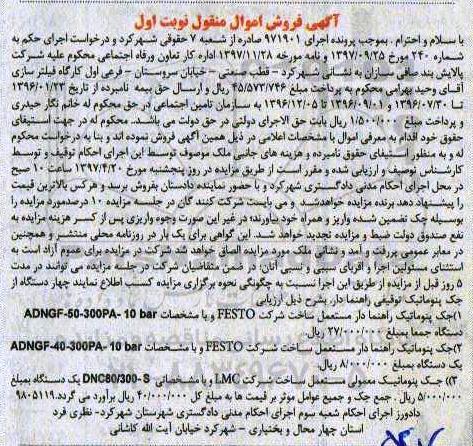 آگهی فروش اموال منقول نوبت اول
با سلام و احترام . بموجب پرونده اجرای ۹۷۱۹۰۱ صادره از شعبه ۷ حقوقی شهرکرد و درخواست اجرای حکم به
شماره ۲۴۰ مورخ ۱۳۹۷/۰۹/۲۵ و نامه مورخه ۱۳۹۷/۱۱/۲۸ اداره کار تعاون ورفاه اجتماعی محکوم علیه شرکت
پالایش بند صافی سازان به نشانی شهرکرد - قطب صنعتی - خیابان سروستان - فرعی اول کارگاه فیلتر سازی
آقای وحید بهرامی محکوم به پرداخت مبلغ ۴۵/۵۷۳/۷۴۶ ریال و ارسال حق بیمه نامبرده از تاریخ ۱۳۹۶/۰۱/۲۳
تا ۱۳۹۶/۰۷/۳۰ و ۱۳۹۶/۰۹/۰۱ تا ۱۳۹۶/۱۲/۰۵ به سازمان تامین اجتماعی در حق محکوم له خانم نگار حیدری
و پرداخت مبلغ ۱/۵۰۰/۰۰۰ ریال بابت حق الاجرای دولتی در حق دولت می باشد. محکوم له در جهت استیفای
حقوق خود اقدام به معرفی اموال با مشخصات اعلامی در ذیل همین آگهی فروش نموده اند و بنا به درخواست محکوم
له و به منظور استیفای حقوق نامبرده و هزینه های جانبی ملک موصوف توسط این اجرای احکام توقیف و توسط
کارشناس توصیف و ارزیابی شده و مقرر است از طریق مزایده در روز پنجشنبه مورخ ۱۳۹۷/۴/۲۰ ساعت ۱۰ صبح
در محل اجرای احکام مدنی دادگستری شهرکرد و با حضور نماینده دادستان بفروش برسد و هرکس بالاترین قیمت
را پیشنهاد دهد برنده مزایده خواهد شد و می بایست شرکت کنند گان در جلسه مزایده ۱۰ درصد مورد مزایده را
بوسیله چک تضمین شده واریز و همراه خود بیاورند؛ در غیر این صورت وجوه واریزی پس از کسر هزینه مزایده به
نفع صندوق دولت ضبط و مزایده تجدید خواهد شد. این گواهی برای یک بار در روزنامه محلی منتشر و همچنین
در معابر عمومی پررفت و آمد و نشانی ملک مورد مزایده الصاق خواهد شد شرکت در مزایده برای عموم آزاد است به
استثنای مسئولین اجرا و اقربای سببی و نسبی آنان؛ در ضمن متقاضیان شرکت در جلسه مزایده می توانند در مدت
۵ روز قبل از مزایده از طریق این اجرا نسبت به چگونگی نحوه برگزاری مزایده کسب اطلاع نمایند چهار دستگاه از
جک پنوماتیک توقیفی راهنما دار بشرح ذیل ارزیابی
۱)جک پنوماتیک راهنما دار مستعمل ساخت شرکت FESTO و با مشخصات ADNGF-50-300PA- 10 bar
دستگاه جمعا بمبلغ ۲۷/۰۰۰/۰۰۰ ریال
۲)جک پنوماتیک راهنما دار مستعمل ساخت شرکت FESTO و با مشخصات ADNGF-40-300PA- 10 bar
یک دستگاه بمبلغ ۸/۰۰۰/۰۰۰ ریال
۳)) جک پنوماتیک معمولی مستعمل ساخت شرکت LMC و با مشخصاتی DNC80/300- S یک دستگاه بمبلغ
۵/۰۰۰/۰۰۰ ریال . جمع جک و جمیع عوامل موثر بر قیمت ها به مبلغ کل ۴۰/۰۰۰/۰۰۰ ریال برآورد می گردد.۹۸۰۵۱۱۹
دادورز اجرای احکام شعبه سوم اجرای احکام مدنی دادگستری شهرستان شهرکرد- نظری فرد
استان چهار محال و بختیاری - شهرکرد خیابان آیت الله کاشانی